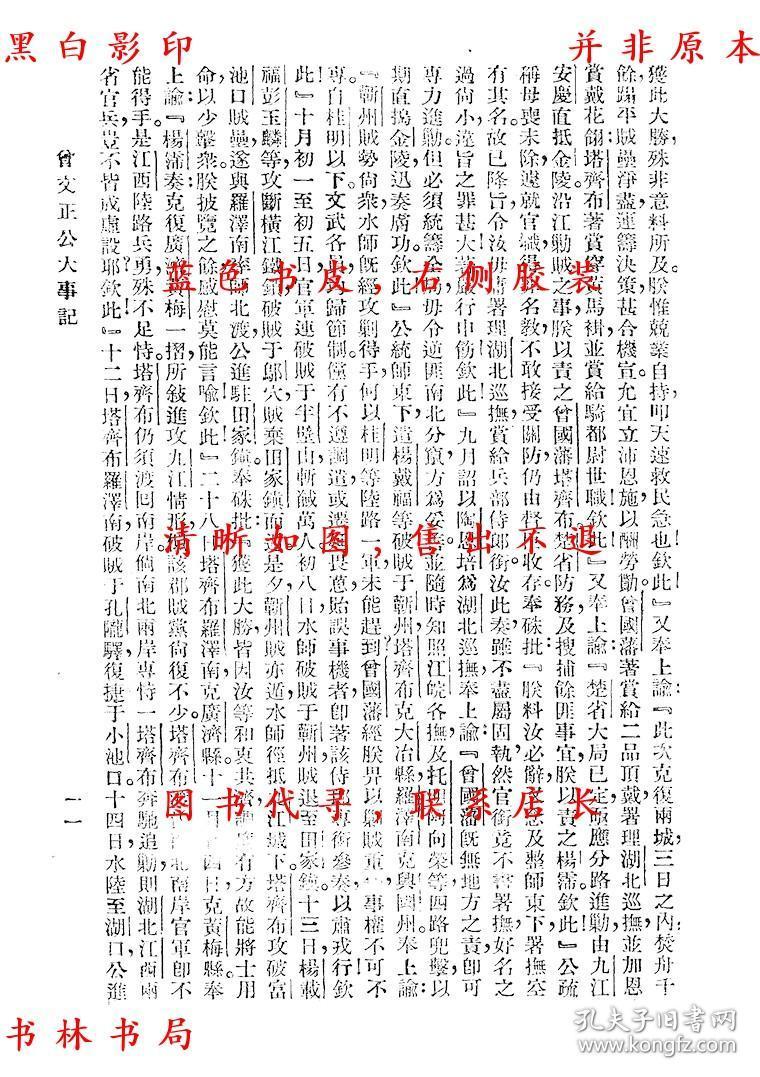 黑白影印
并非原本
獲此大勝殊非意料所及朕惟兢業自持叩天速救民急也欽此』又奉上諭『此次克復兩城三日之內焚舟千
餘蹋平賊壘淨盡運籌決策甚合機宜允宜立沛恩施以酬勞勩曾國藩著賞給二品頂戴署理湖北巡撫並加恩
賞戴花翎塔齊布著賞穿黃馬褂並賞給騎都尉世職欽此』又奉上諭『楚省大局已定亟應分路進勦由九江
安慶直抵金陵沿江勦賊之事朕以責之曾國藩塔齊布楚省防務及搜捕餘匪事宜朕以責之楊霈欽此』公疏
稱母喪未除遽就官職得 名教不敢接受關防仍由督 收存奉硃批『朕料汝必辭 念及整師東下署撫空
有其名故已降旨令汝毋庸署理湖北巡撫賞給兵部侍郎銜汝此奏雖不盡屬固執然官銜竟不書署撫好名之
過尚小違旨之罪甚大著嚴行申飭欽此』九月詔以陶恩培爲湖北巡撫奉上諭『曾國藩既無地方之責即可
專力進勦但必須統籌全 毋令逆匪南北分竄方爲妥 並隨時知照江皖各撫及托明 向榮等四路兜擊以
期直搗金陵迅奏膚功欽此』公統師東下遣楊載福等破賊于蘄州塔齊布克大冶縣羅澤南克興國州奉上諭
『蘄州賊勢尙衆水師既經攻剿得手何以桂明等陸路一軍未能趕到曾國藩經朕畀以勦賊重 事權不可不
專自桂明以下文武各員 歸節制儻有不遵調遣或遷延畏葸貽誤事機者卽著該侍 專銜參奏以肅戎行欽
此』十月初一至初五日官軍連破賊于半壁山斬馘萬人初八日水師破賊于蘄州賊退至田家鎮十三日楊載
福彭玉麟等攻斷橫江鐵鎖破賊于鄔穴賊棄田家鎮而 是夕蘄州賊亦遁水師徑抵九江城下塔齊布攻破富
池口賊壘遂與羅澤南率師北渡公進駐田家鎮奉硃批『獲此大勝皆因汝等和衷共濟 有方故能將士用
命以少擊衆朕披覽之餘感慰莫能言喻欽此』二十八日塔齊布羅澤南克廣濟縣十一月 四日克黃梅縣奉
上諭『楊霈奏克復廣濟黃梅一摺所敍進攻九江情形 該郡賊黨尚復不少塔齊布 北南岸官軍卽不
能得手是江西陸路兵勇殊不足恃塔齊布仍須渡回南岸倘南北兩岸專恃一塔齊布奔馳追勦則湖北江西兩
省官兵豈不皆成虛設耶欽此』十二日塔齊布羅澤南破賊于孔隴驛復捷于小池口十四日水陸至湖口公進
曾文正公大事記
一一
蓝色书皮，右侧胶装
清晰如图，售出不退
图书代寻，联系店长
书林书局
孔夫子旧书网
kongfz.com